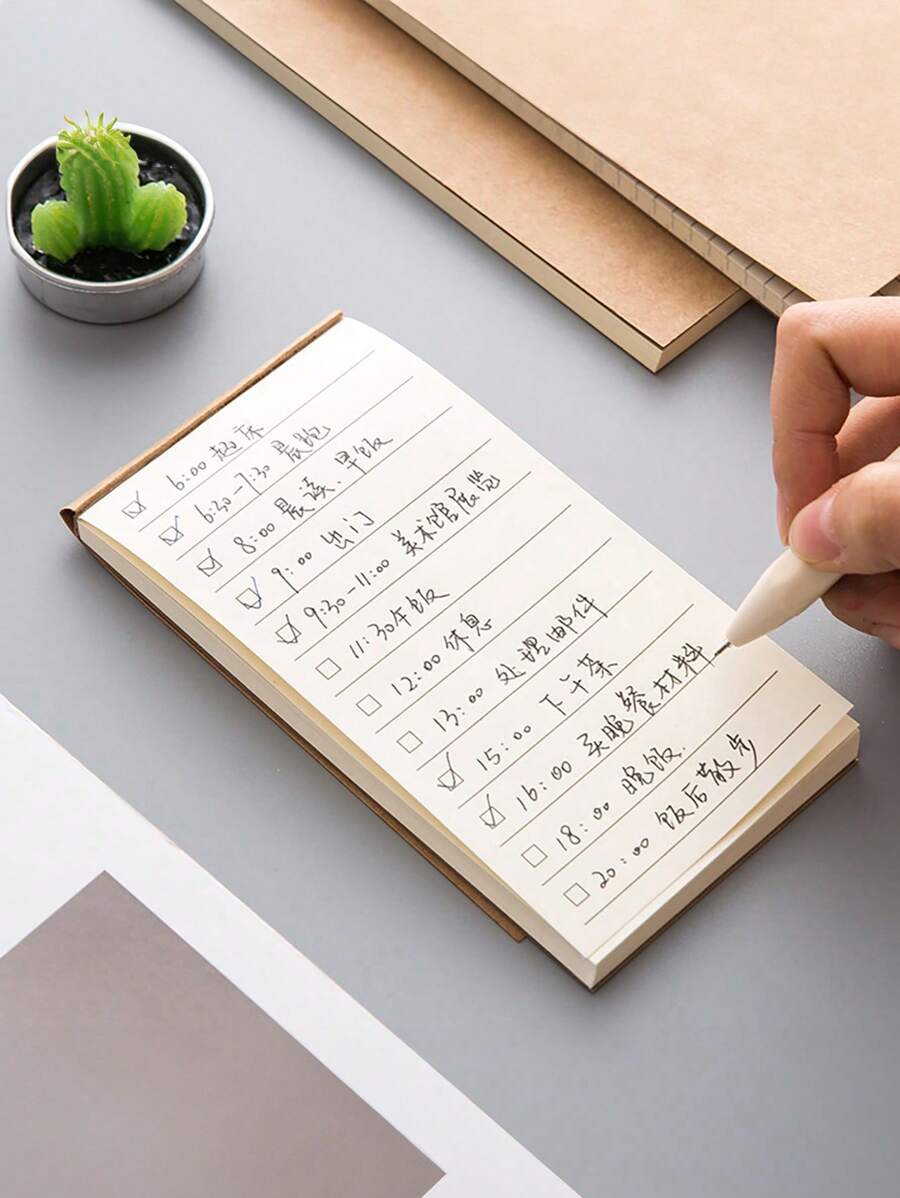 6:00 起床
6:30-7:30 晨跑
8:00 晨读、早饭
9:00 出门
9:30-11:00 美术馆展览
11:30午饭
12:00 休息
13:00 处理邮件
15:00 下午茶
16:00 买晚餐材料
18:00 晚饭.
20:00 饭后散步